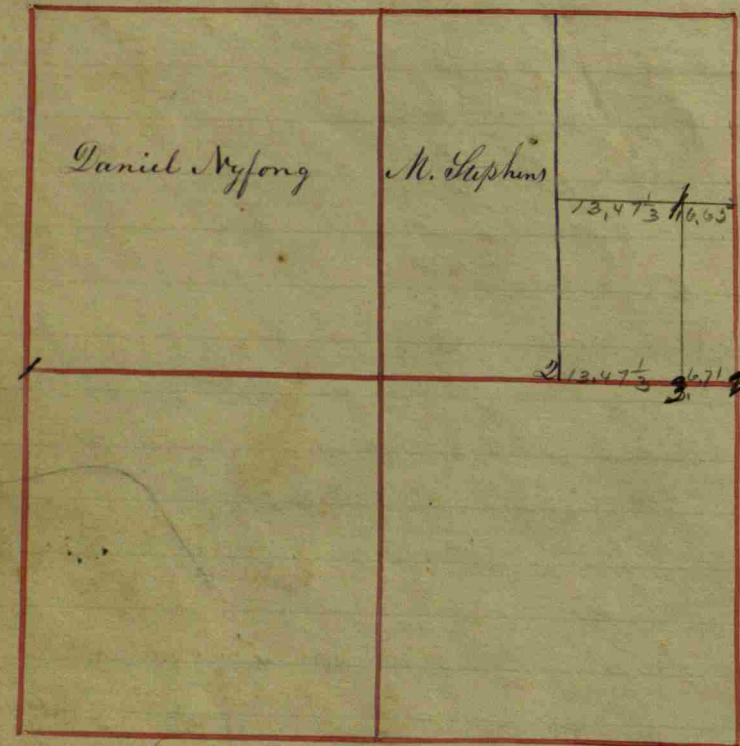 Daniel Nyfong
M. Stephens
13,47 1/3
1
6,65
1
2
13,47 1/3
3
6,71
2